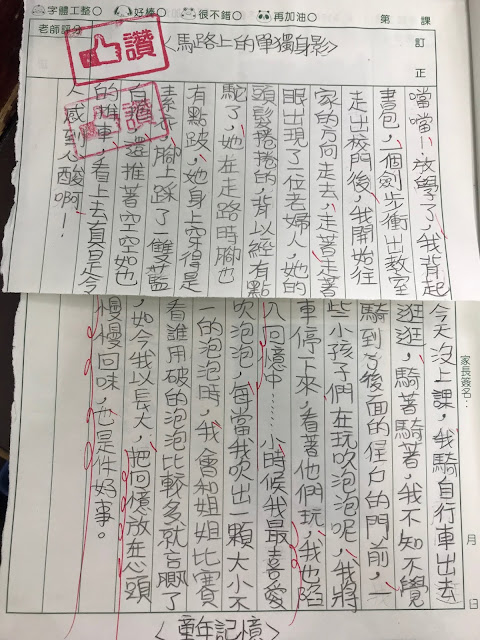 字體工整○ 好棒○ 很不錯○ 再加油○ 第 課
老師評分
訂正
讚
<馬路上的單獨身影>
噹噹!放學了,我背起
書包,一個劍步衝出教室
走出校門後,我開始往
家的方向走去,走著走著
眼出現了一位老婦人,她的
頭髮捲捲的,背以經有點
駝了,她在走路時腳也
有點跛,她身上穿得是
素衣,腳上踩了一雙藍
白拖,還推著空空如也
的推車,看上去真是令
人感到心酸啊!
家長簽名: 月 日
今天沒上課,我騎自行車出去
逛逛,騎著騎著,我不知不覺
騎到了後面的住戶的門前,一
些小孩子們在玩吹泡泡呢,我將
車停下來,看著他們玩,我也陷
入回憶中……小時候我最喜愛
吹泡泡,每當我吹出一顆大小不
一的泡泡時,我會和姐姐比賽
看誰用破的泡泡比較多就贏了
,如今我以長大,把回憶放在心頭
慢慢回味,也是件好事。
<童年記憶>